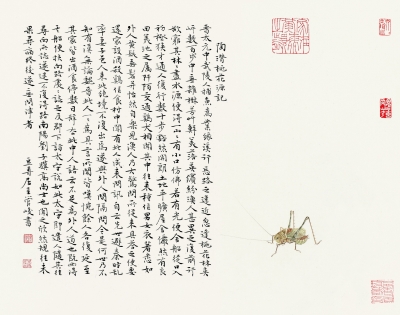 陶潛桃花源記
晉太元中武陵人捕魚為業緣溪行忘路之遠近忽逢桃花林夾
岸數百步中無雜樹芳草鮮美落英繽紛漁人甚異之復前行
欲窮其林林盡水源便得一山山有小口仿佛若有光便舍船從口入
初極狹才通人復行數十步豁然開朗土地平曠屋舍儼然有良
田美池之屬阡陌交通雞犬相聞其中往來種作男女衣著悉如
外人黃髮垂髫並怡然自樂見漁人乃大驚問所從來具答之便要
還家設酒殺雞作食村中聞有此人咸來問訊自云先世避秦時亂
率妻子邑人來此絕境不復出焉遂與外人間隔問今是何世乃不
知有漢無論魏晉此人一一為具言所聞皆嘆惋餘人各復延至
其家皆出酒食停數日辭去此中人語云不足為外人道也既出得
其船便扶向路處處誌之及郡下詣太守說如此太守即遣人隨其往
尋向所誌遂迷不復得路南陽劉子驥高尚士也聞之欣然規往未
果尋病終後遂無問津者